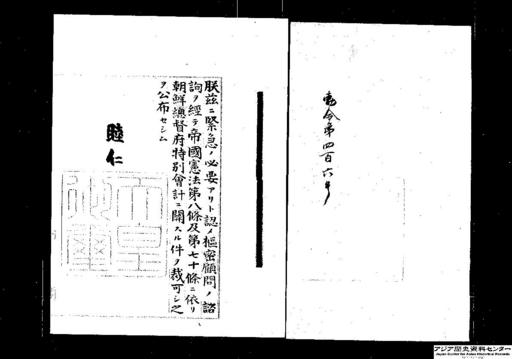 勅令第四百六号
朕玆ニ緊急ノ必要アリト認メ樞密顧問ノ諮
詢ヲ經テ帝國憲法第八條及第七十條ニ依リ
朝鮮總督府特別會計ニ關スル件ヲ裁可シ之
ヲ公布セシム
睦仁
アジア歴史資料センター
Japan Center for Asian Historical Records